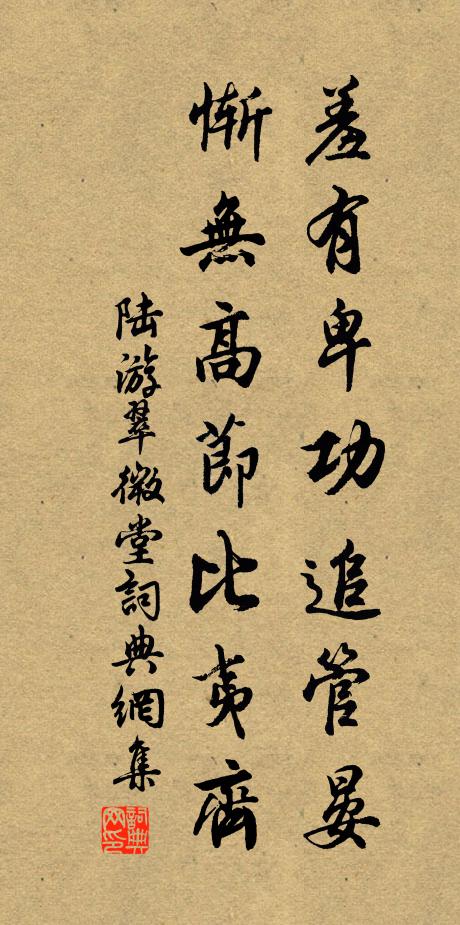 羞有卑功追管晏
慚無高節比夷齊
陸游翠微堂詞典網集
詞典網印